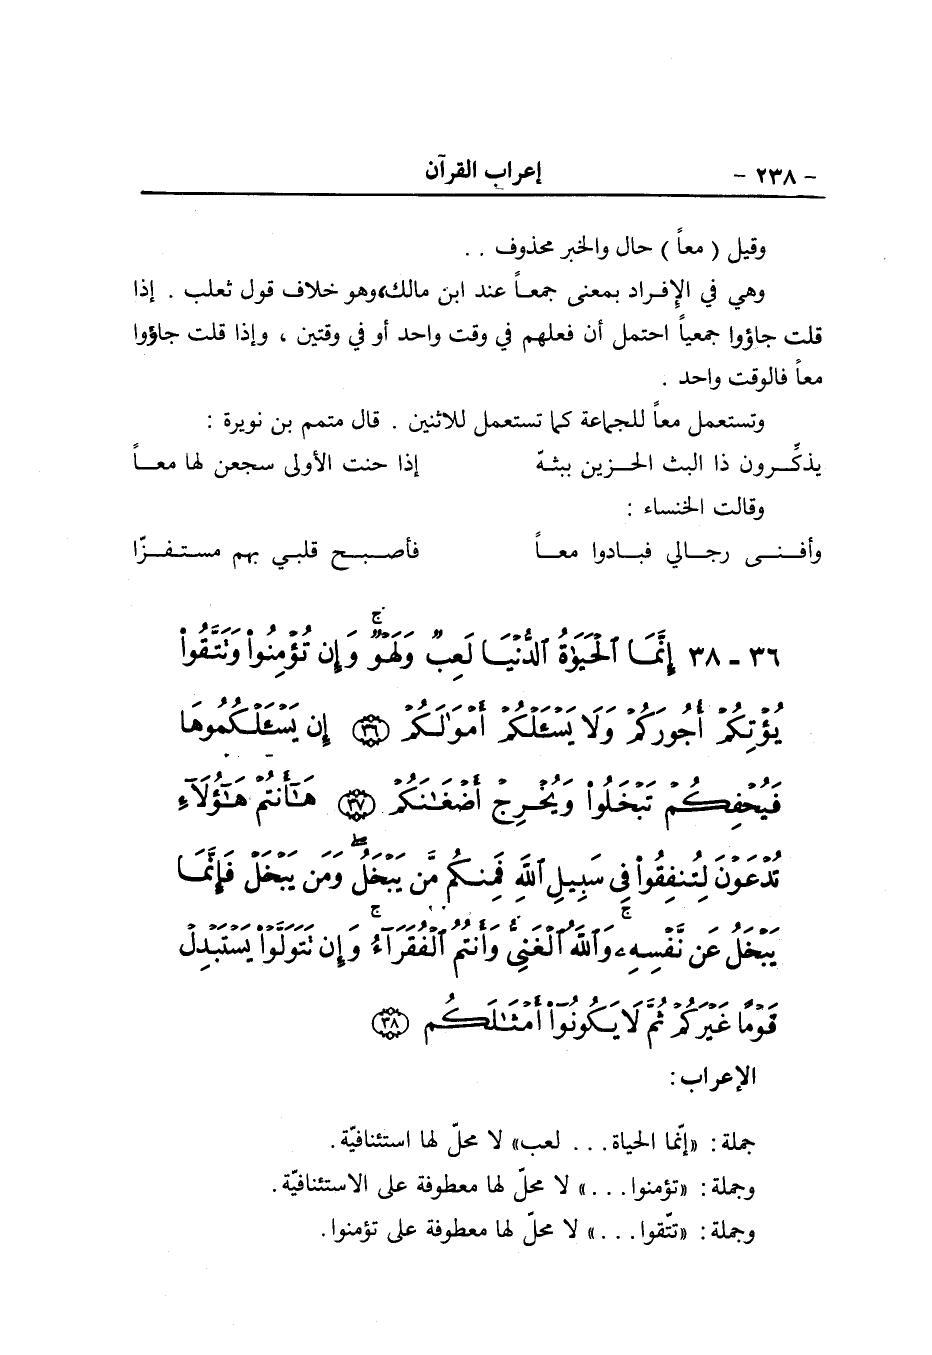 - ٢٣٨ - إعراب القرآن
وقيل ( معاً ) حال والخبر محذوف . .
وهي في الإفراد بمعنى جمعاً عند ابن مالك،وهو خلاف قول ثعلب . إذا
قلت جاؤوا جمعياً احتمل أن فعلهم في وقت واحد أو في وقتين ، وإذا قلت جاؤوا
معاً فالوقت واحد .
وتستعمل معاً للجماعة كما تستعمل للاثنين . قال متمم بن نويرة :
يذكّرون ذا البث الحزين ببثهّ إذا حنت الأولى سجعن لها معاً
وقالت الخنساء :
وأفنى رجالي فبادوا معاً فأصبح قلبي بهم مستفزّا
٣٦ - ٣٨ إِنَّمَا ٱلْحَيَوٰةُ ٱلدُّنْيَا لَعِبٌ وَلَهْوٌ ۚ وَإِن تُؤْمِنُوا۟ وَتَتَّقُوا۟
يُؤْتِكُمْ أُجُورَكُمْ وَلَا يَسْـَٔلْكُمْ أَمْوَٰلَكُمْ ﴿٣٦﴾ إِن يَسْـَٔلْكُمُوهَا
فَيُحْفِكُمْ تَبْخَلُوا۟ وَيُخْرِجْ أَضْغَـٰنَكُمْ ﴿٣٧﴾ هَـٰٓأَنتُمْ هَـٰٓؤُلَآءِ
تُدْعَوْنَ لِتُنفِقُوا۟ فِى سَبِيلِ ٱللَّهِ فَمِنكُم مَّن يَبْخَلُ ۖ وَمَن يَبْخَلْ فَإِنَّمَا
يَبْخَلُ عَن نَّفْسِهِۦ ۚ وَٱللَّهُ ٱلْغَنِىُّ وَأَنتُمُ ٱلْفُقَرَآءُ ۚ وَإِن تَتَوَلَّوْا۟ يَسْتَبْدِلْ
قَوْمًا غَيْرَكُمْ ثُمَّ لَا يَكُونُوٓا۟ أَمْثَـٰلَكُم ﴿٣٨﴾
الإعراب:
جملة: «إنّما الحياة. . . لعب» لا محلّ لها استئنافيّة.
وجملة: «تؤمنوا. . .» لا محلّ لها معطوفة على الاستئنافيّة.
وجملة: «تتّقوا. . .» لا محلّ لها معطوفة على تؤمنوا.